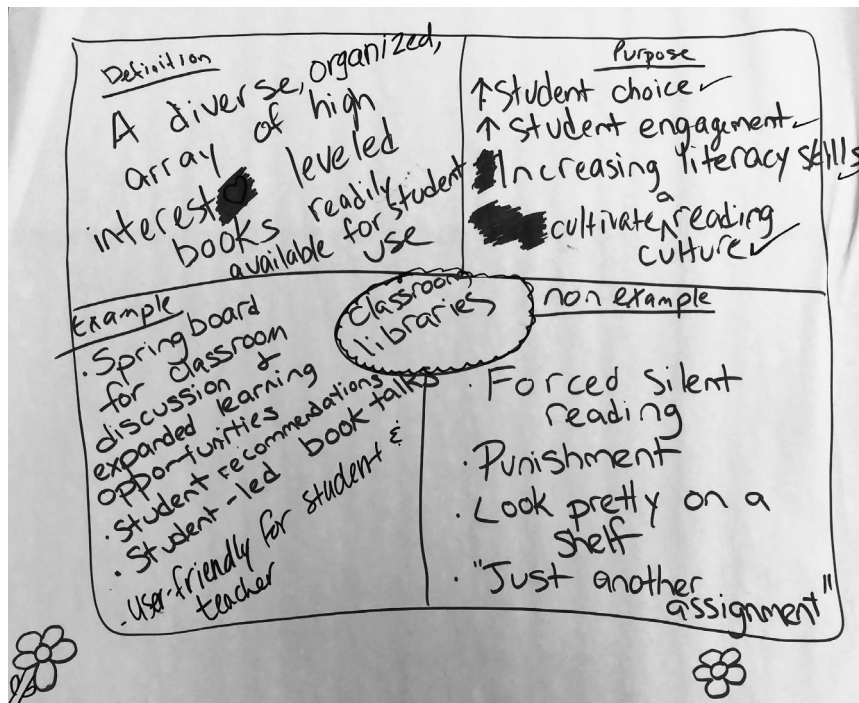 Definition
A diverse, organized,
array of high
interest leveled
books readily
available for student
use
Purpose
↑ Student choice ✓
↑ student engagement ✓
Increasing literacy skills ✓
cultivate a reading
culture ✓
Classroom
libraries
Example
· Springboard
for classroom
discussion &
expanded learning
opportunities
· Student recommendations
· Student-led book talks
- user-friendly for student &
teacher
non example
· Forced silent
reading
· Punishment
· Look pretty on a
shelf
· "Just another
assignment"